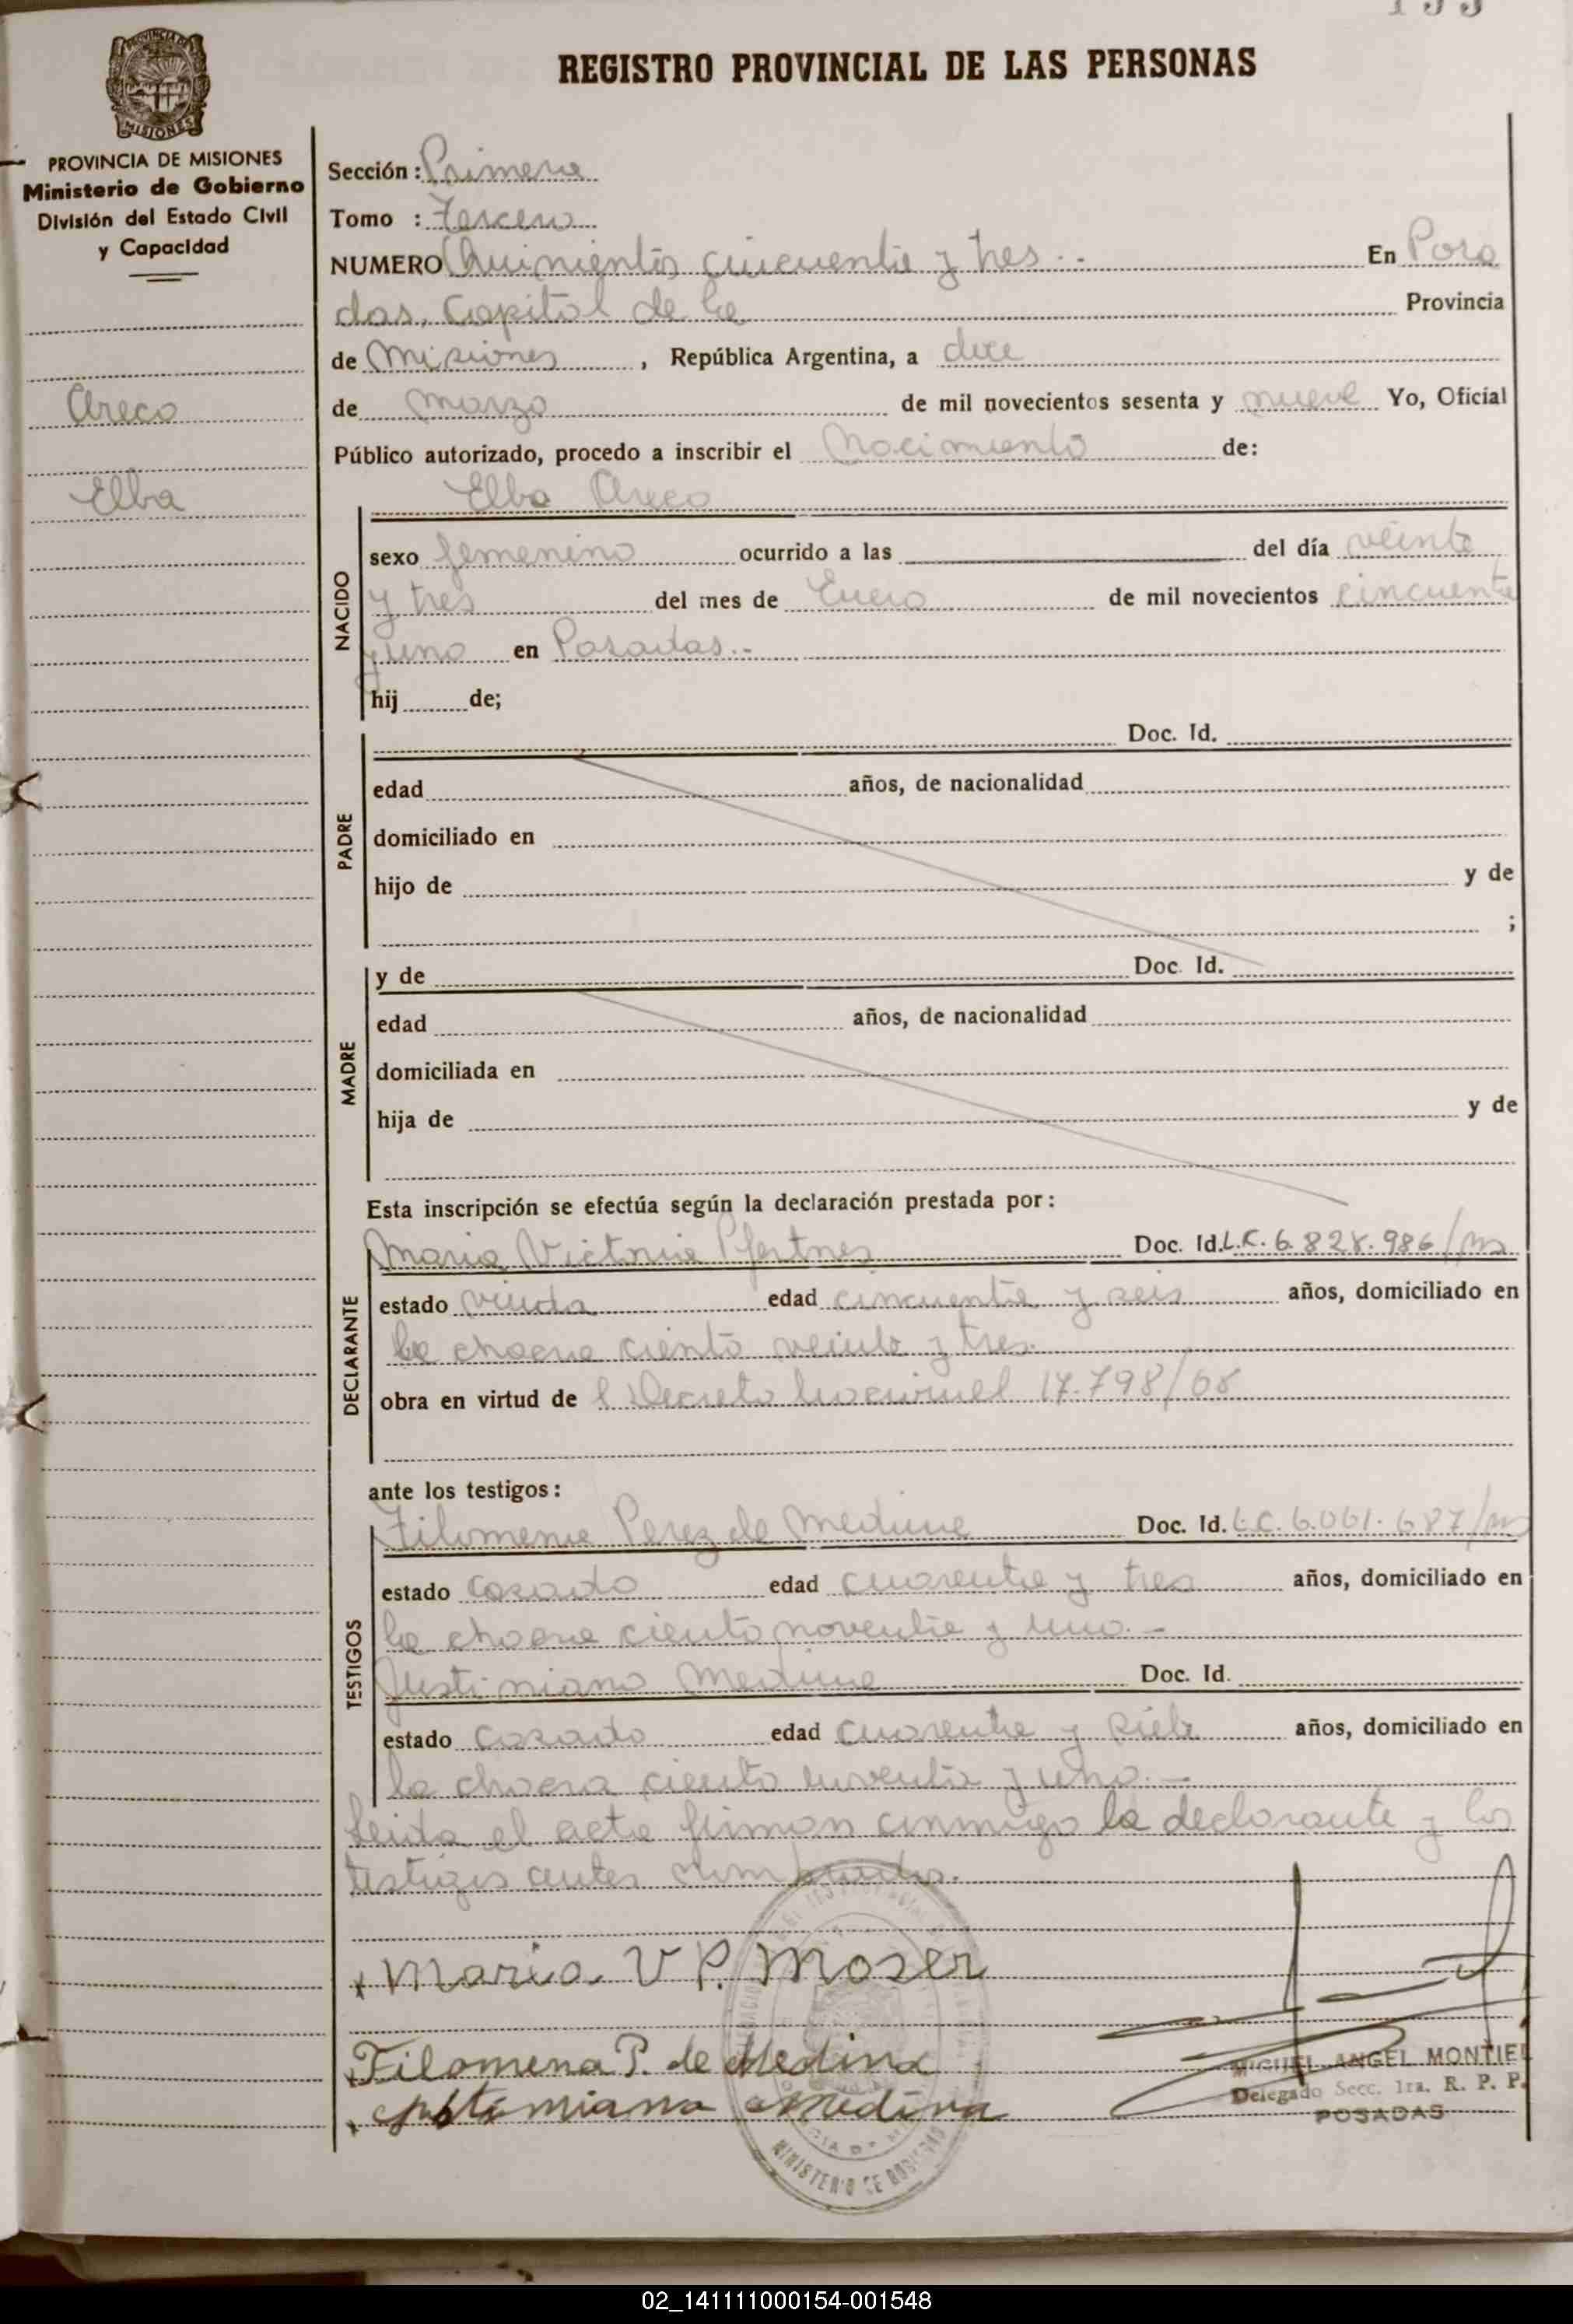 REGISTRO PROVINCIAL DE LAS PERSONAS
MISIONES
PROVINCIA DE MISIONES
Ministerio de Gobierno
División del Estado Civil
y Capacidad
Areco
Elba
Sección: Primera
Tomo : Tercero
NUMERO Quinientos cincuenta y tres.- En Posa
das, Capital de la Provincia
de Misiones, República Argentina, a doce
de marzo de mil novecientos sesenta y nueve Yo, Oficial
Público autorizado, procedo a inscribir el Nacimiento de:
Elba Areco
NACIDO
sexo femenino ocurrido a las del día veinte
y tres del mes de Enero de mil novecientos cincuenta
y uno en Posadas.-
hij de;
PADRE
Doc. Id.
edad años, de nacionalidad
domiciliado en
hijo de y de
;
MADRE
y de Doc. Id.
edad años, de nacionalidad
domiciliada en
hija de y de
Esta inscripción se efectúa según la declaración prestada por:
DECLARANTE
Maria Victoria Pfertner Doc. Id. L.C. 6.828.986/ms
estado viuda edad cincuenta y seis años, domiciliado en
la chacra ciento veinte y tres.
obra en virtud de l Decreto Nacional 17.798/68
ante los testigos:
TESTIGOS
Filomena Perez de Medina Doc. Id. L.C. 6.061.687/ms
estado casada edad cuarenta y tres años, domiciliado en
la chacra ciento noventa y uno.-
Justiniano Medina Doc. Id.
estado casado edad cuarenta y siete años, domiciliado en
la chacra ciento noventa y uno.-
Leida el acta firman conmigo la declarante y los
testigos antes nombrados.
Maria V P. Moser
Filomena P. de Medina
Justiniano Medina
MIGUEL ANGEL MONTIEL
Delegado Secc. 1ra. R. P. P.
POSADAS
MINISTERIO DE GOBIERNO
02_141111000154-001548